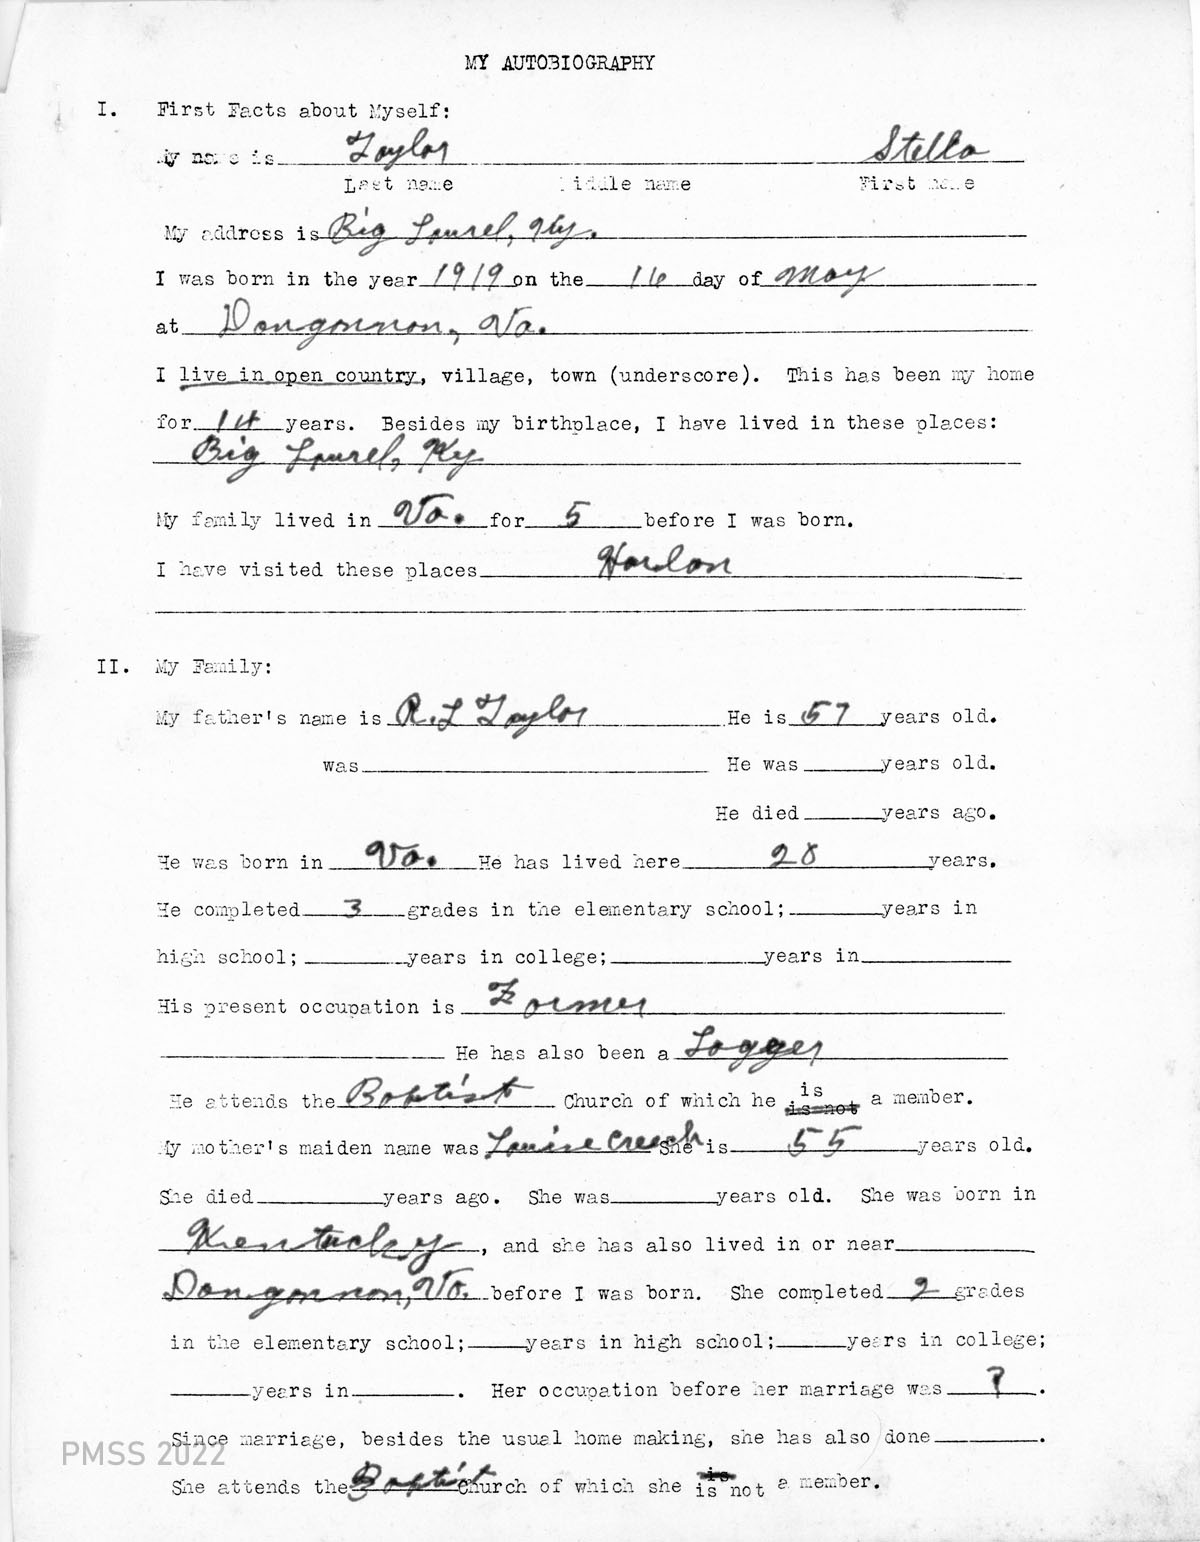 MY AUTOBIOGRAPHY
I. First Facts about Myself:
My name is Taylor Stella
Last name Middle name First name
My address is Big Laurel, Ky.
I was born in the year 1919 on the 16 day of May
at Dongonnon, Va.
I live in open country, village, town (underscore). This has been my home
for 14 years. Besides my birthplace, I have lived in these places:
Big Laurel, Ky
My family lived in Va. for 5 before I was born.
I have visited these places Harlan
II. My Family:
My father's name is R.L Taylor He is 57 years old.
was He was years old.
He died years ago.
He was born in Va. He has lived here 28 years.
He completed 3 grades in the elementary school; years in
high school; years in college; years in
His present occupation is Farmer
He has also been a Logger
He attends the Baptist Church of which he is is not a member.
My mother's maiden name was Louise Creech She is 55 years old.
She died years ago. She was years old. She was born in
Kentucky, and she has also lived in or near
Dongonnon, Va. before I was born. She completed 2 grades
in the elementary school; years in high school; years in college;
years in . Her occupation before her marriage was ? .
Since marriage, besides the usual home making, she has also done .
She attends the Baptist Church of which she is is not a member.
PMSS 2022